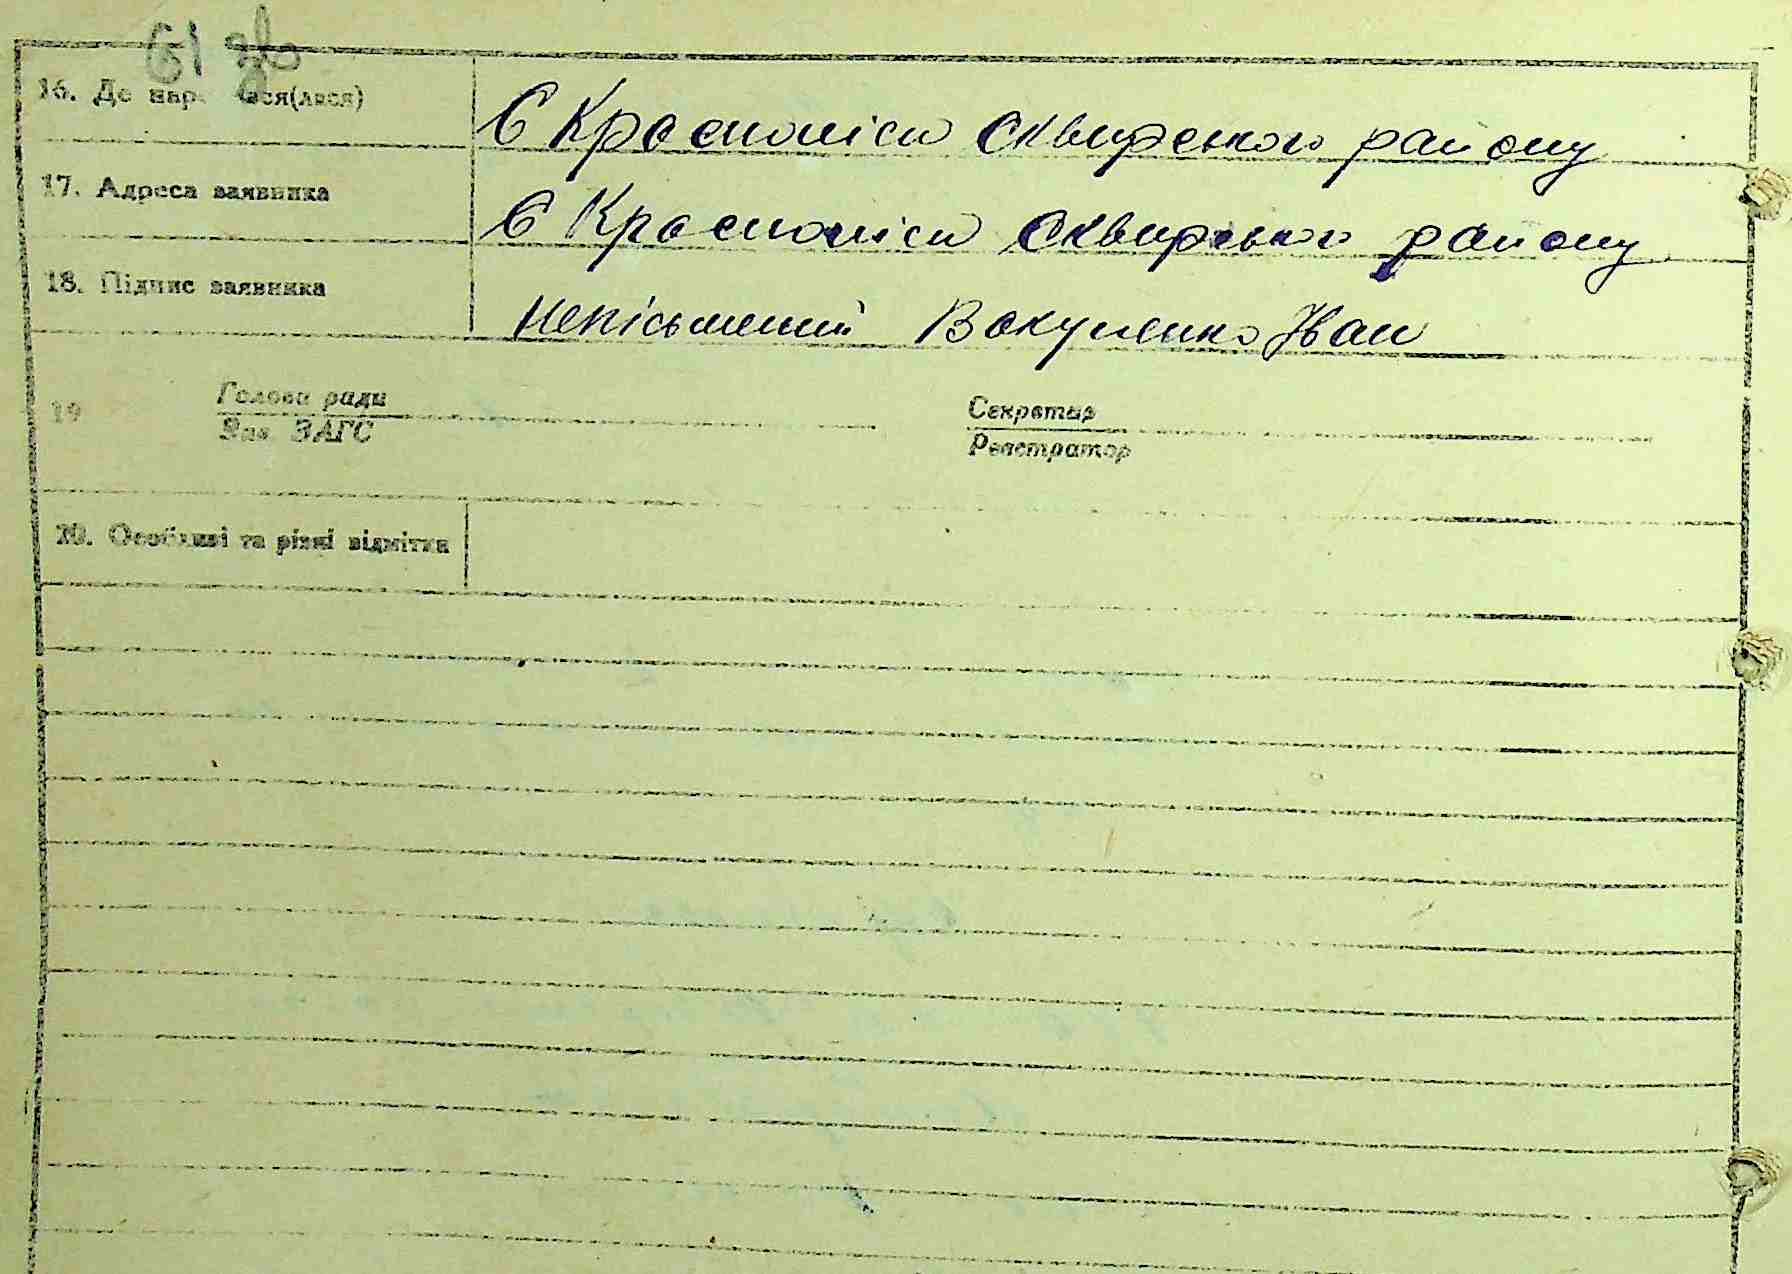 61 зв
16. Де нар ася(лася) С Краснолісы Сквирського району
17. Адреса заявника С Краснолісы Сквирського району
18. Підпис заявника непісьмений Вакуленко Іван
19 Голова ради Секретар
Зав. ЗАГС Реєстратор
20. Особливі та різні відмітки